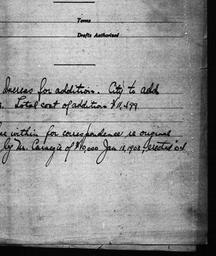 Terms
Drafts Authorized
increase for addition. City to add
Total cost of addition $11,499
within for correspondence re original
by Mr. Carnegie of $10,000 Jan 18, 1902,